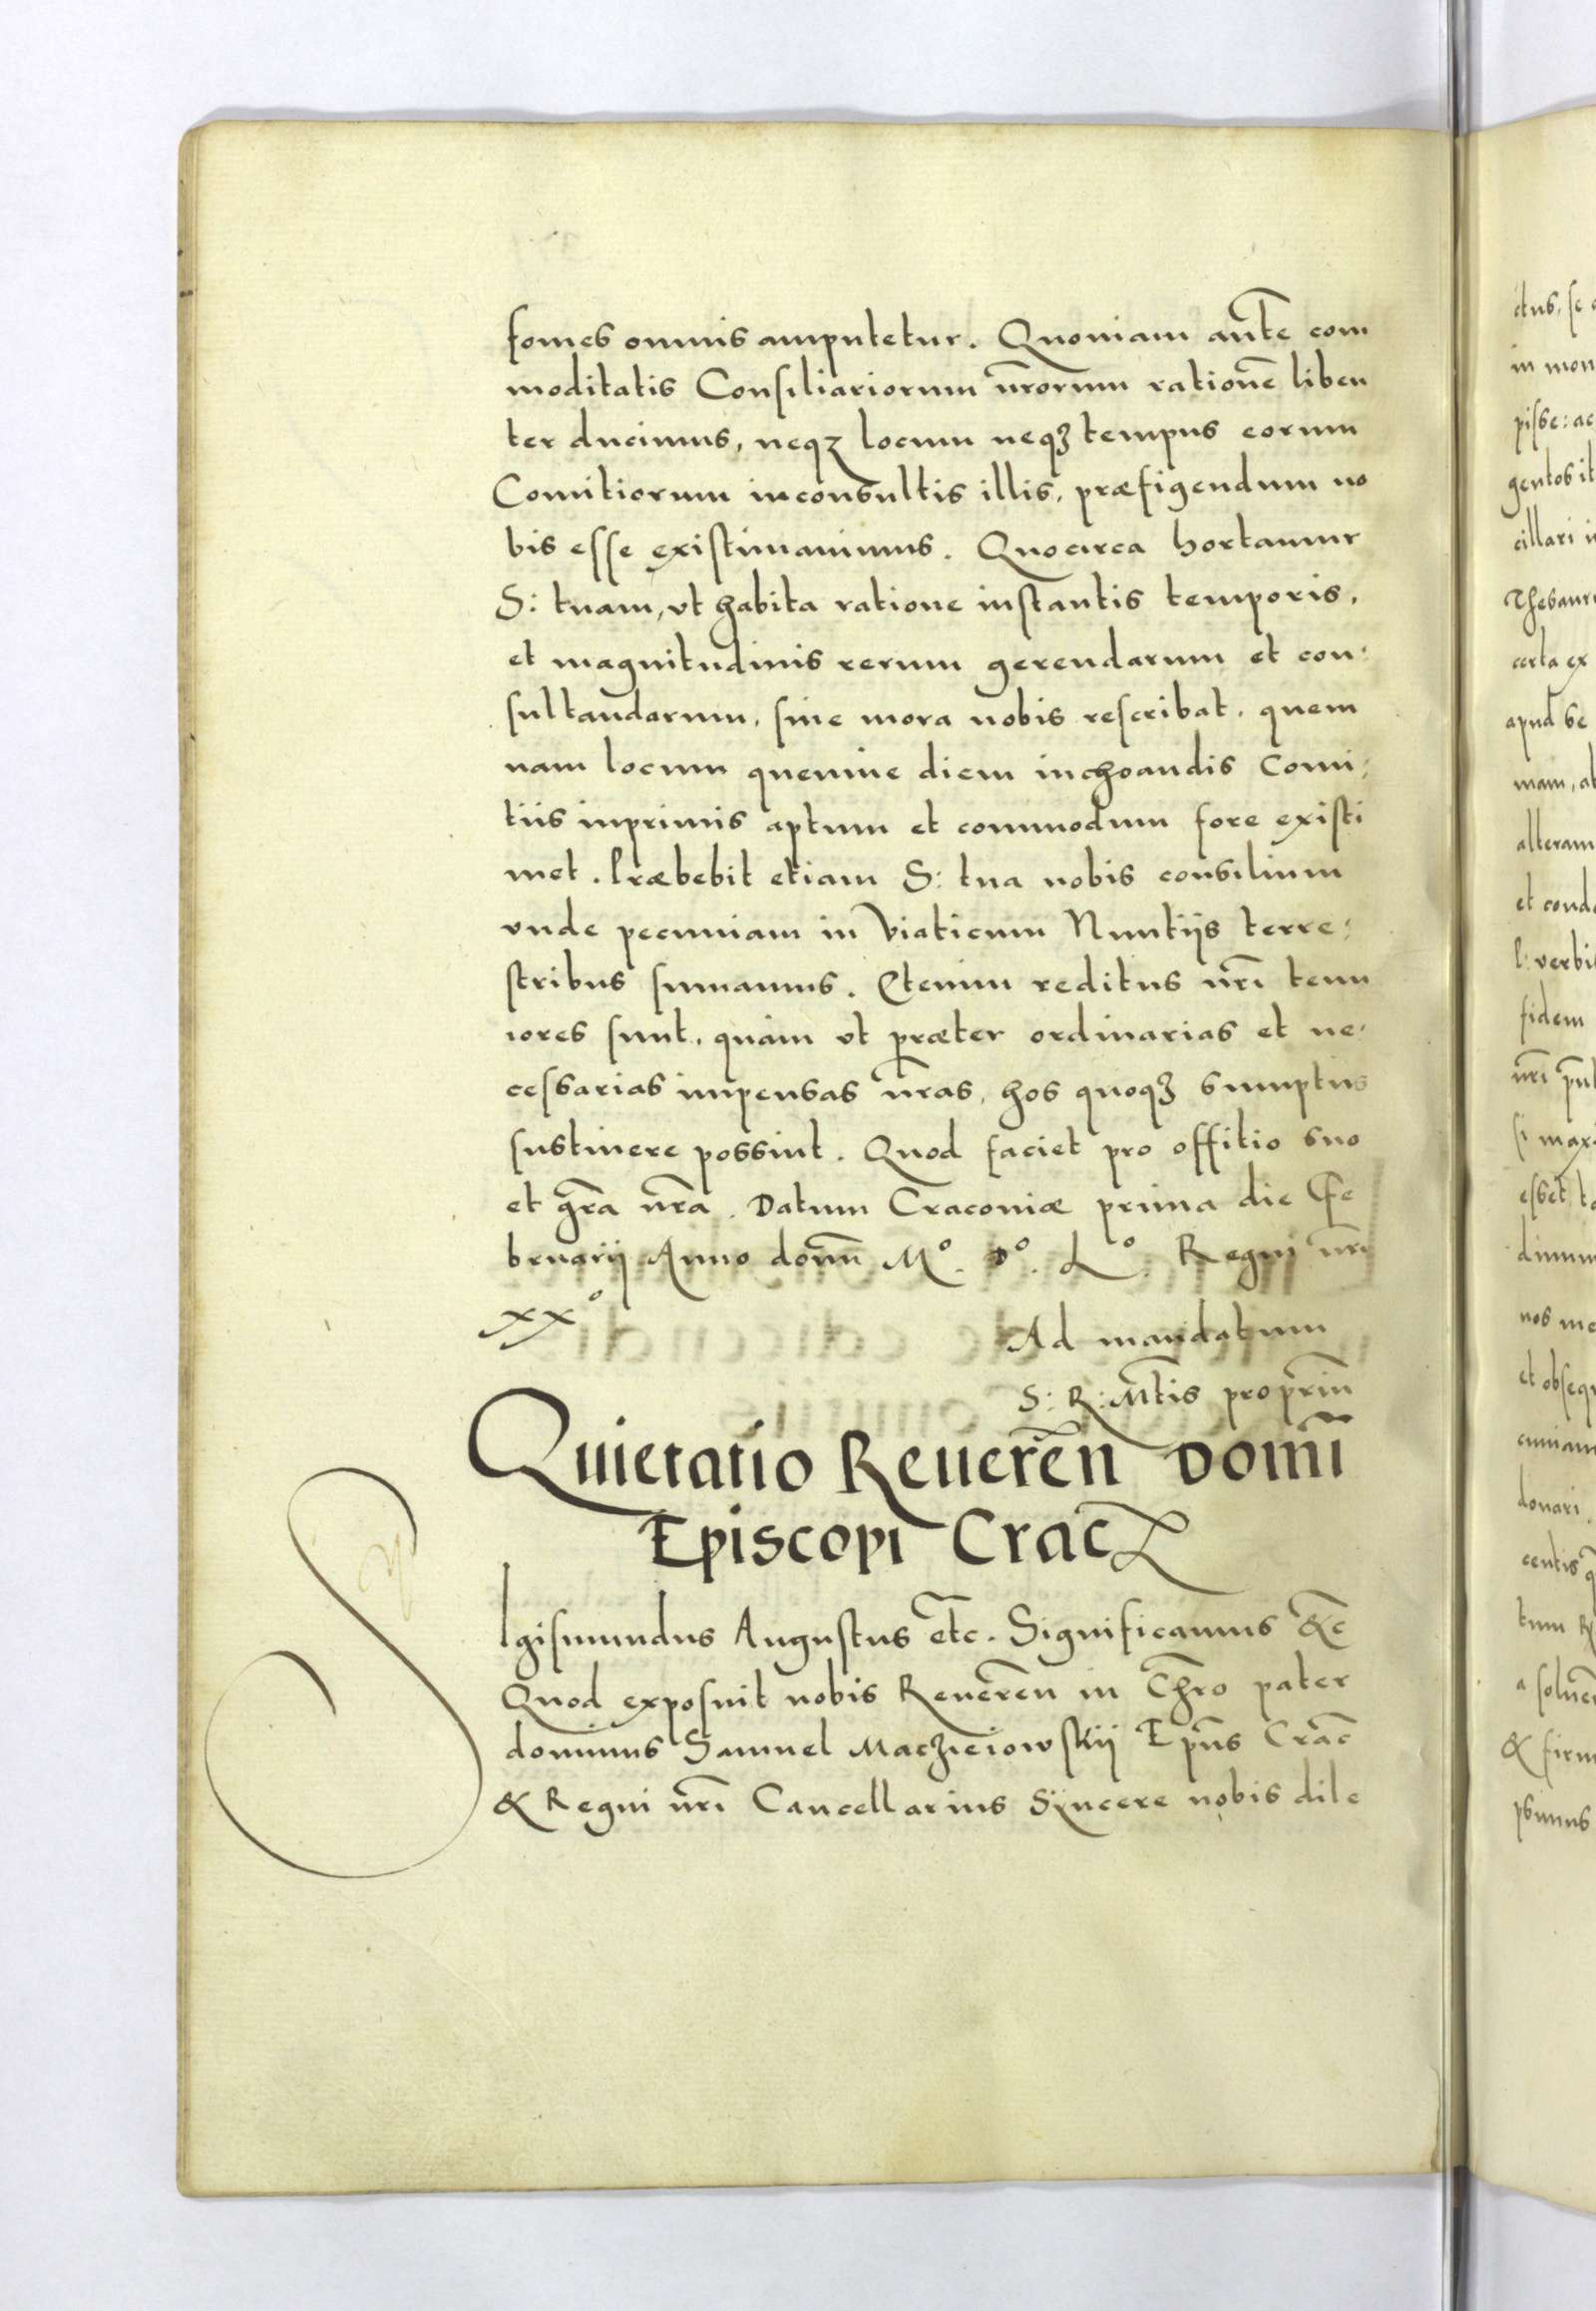 fomes omnis amputetur. Quoniam aūte com
moditatis Consiliariorum nr̄orum rationē liben
ter ducimus, neqꝫ locum neqꝫ tempus eorum
Comitiorum inconsultis illis, præfigendum no
bis esse existimauimus. Quocirca hortamur
S: tuam, vt habita ratione instantis temporis,
et magnitudinis rerum gerendarum et con:
sultandarum, sine mora nobis rescribat, quem
nam locum quemue diem inchoandis Comi:
tiis inprimis aptum et commodum fore existi
met. Præbebit etiam S: tua nobis consilium
vnde pecuniam in viaticum Nuntijs terre:
stribus sumamus. Etenim reditus nr̄i tenu
iores sunt, quàm vt præter ordinarias et ne:
cessarias impensas nr̄as, hos quoqꝫ sumptus
sustinere possint. Quod faciet pro offitio suo
et gr̄a nr̄a. Datum Cracoviæ prima die Fe
bruarij Anno domī M°. D°. L°. Regni nr̄i
xx°
Ad mandatum
S: R: Mt̄is propriū
Quietatio Reueren̄ Domī
Episcopi Crac̄
SIgismundus Augustus et̄c. Significamus &c̄
Quod exposuit nobis Reueren̄ in Chr̄o pater
dominus Samuel Maczieiowskij Ep̄us Crac̄
& Regni nr̄i Cancellarius Syncere nobis dile
ctus, se
in mon
pisse: ac
gentos it
cillari
Thesaur
certa ex
apud se
mam, a
alteram
et cond
verbi
fidem
nr̄i
si max
esset
dimm
nos me
et obseq
cuniam
donari
centis
tum R
a solue
& firm
psimus